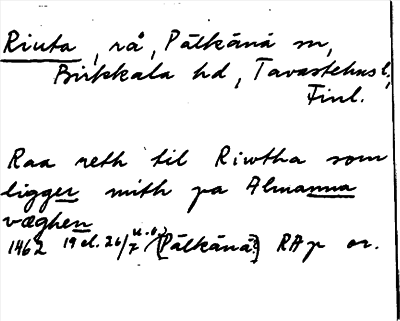 Riuta, rå, Pälkänä sn,
Birkkala hd, Tavastehus l,
Finl.
Raa reth til Riwtha som
ligger mith pa Almanna
væghen
1462 19 el. 26/7 u.o. [Pälkänä?] RAp or.